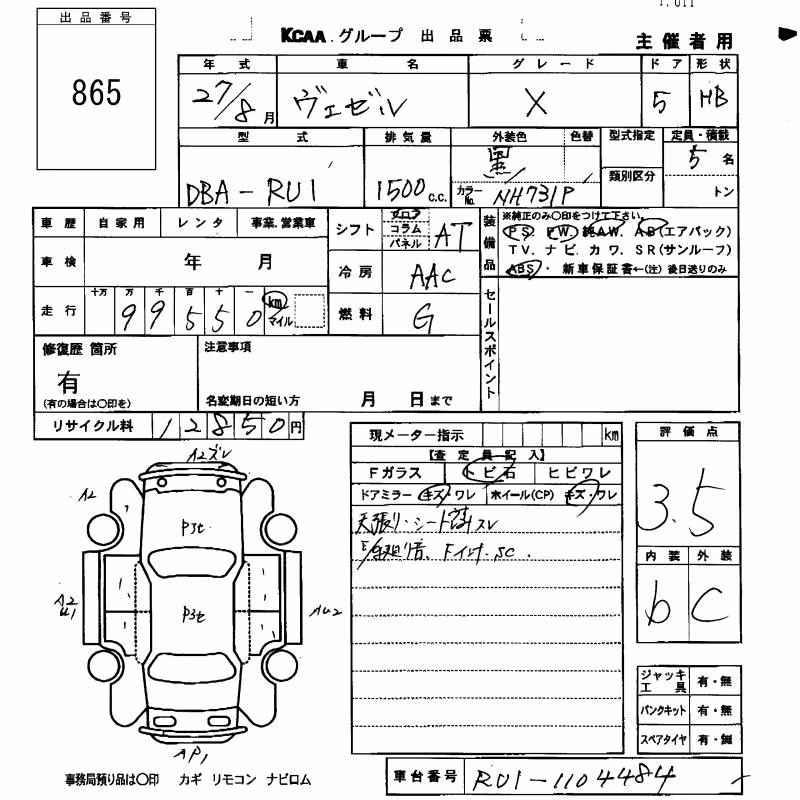 出品番号
865
KCAA.グループ 出品票
主催者用
年式 車名 グレード ドア 形状
27/8月 ヴェゼル X 5 HB
型式 排気量 外装色 色替 型式指定 定員・積載
DBA-RU1 1500c.c. 黒 カラーNo. NH731P 類別区分 5名 トン
車歴 自家用 レンタ 事業.営業車
車検 年 月
走行 十万 万 千 百 十 一
99550 km マイル
シフト フロア コラム パネル AT
冷房 AAC
燃料 G
装備品 ※純正のみ〇印をつけて下さい。
PS. PW. 純AW. AB(エアバック)
TV. ナビ. カワ. SR(サンルーフ)
ABS・ 新車保証書←(注) 後日送りのみ
セールスポイント
修復歴 箇所
有
(有の場合は〇印を)
注意事項
名変期日の短い方 月 日まで
リサイクル料 12850円
現メーター指示 km
【査定員記入】
Fガラス トビ石 ヒビワレ
ドアミラー キズ・ワレ ホイール(CP) キズ・ワレ
天張り・シート スレ
Fイタ. SC.
評価点
3.5
内装 外装
b C
A2ズレ
A2
P3t
A2
U1
P3t
AU2
AP1
ジャッキ工具 有・無
パンクキット 有・無
スペアタイヤ 有・無
事務局預り品は〇印 カギ リモコン ナビロム
車台番号 RU1-1104484